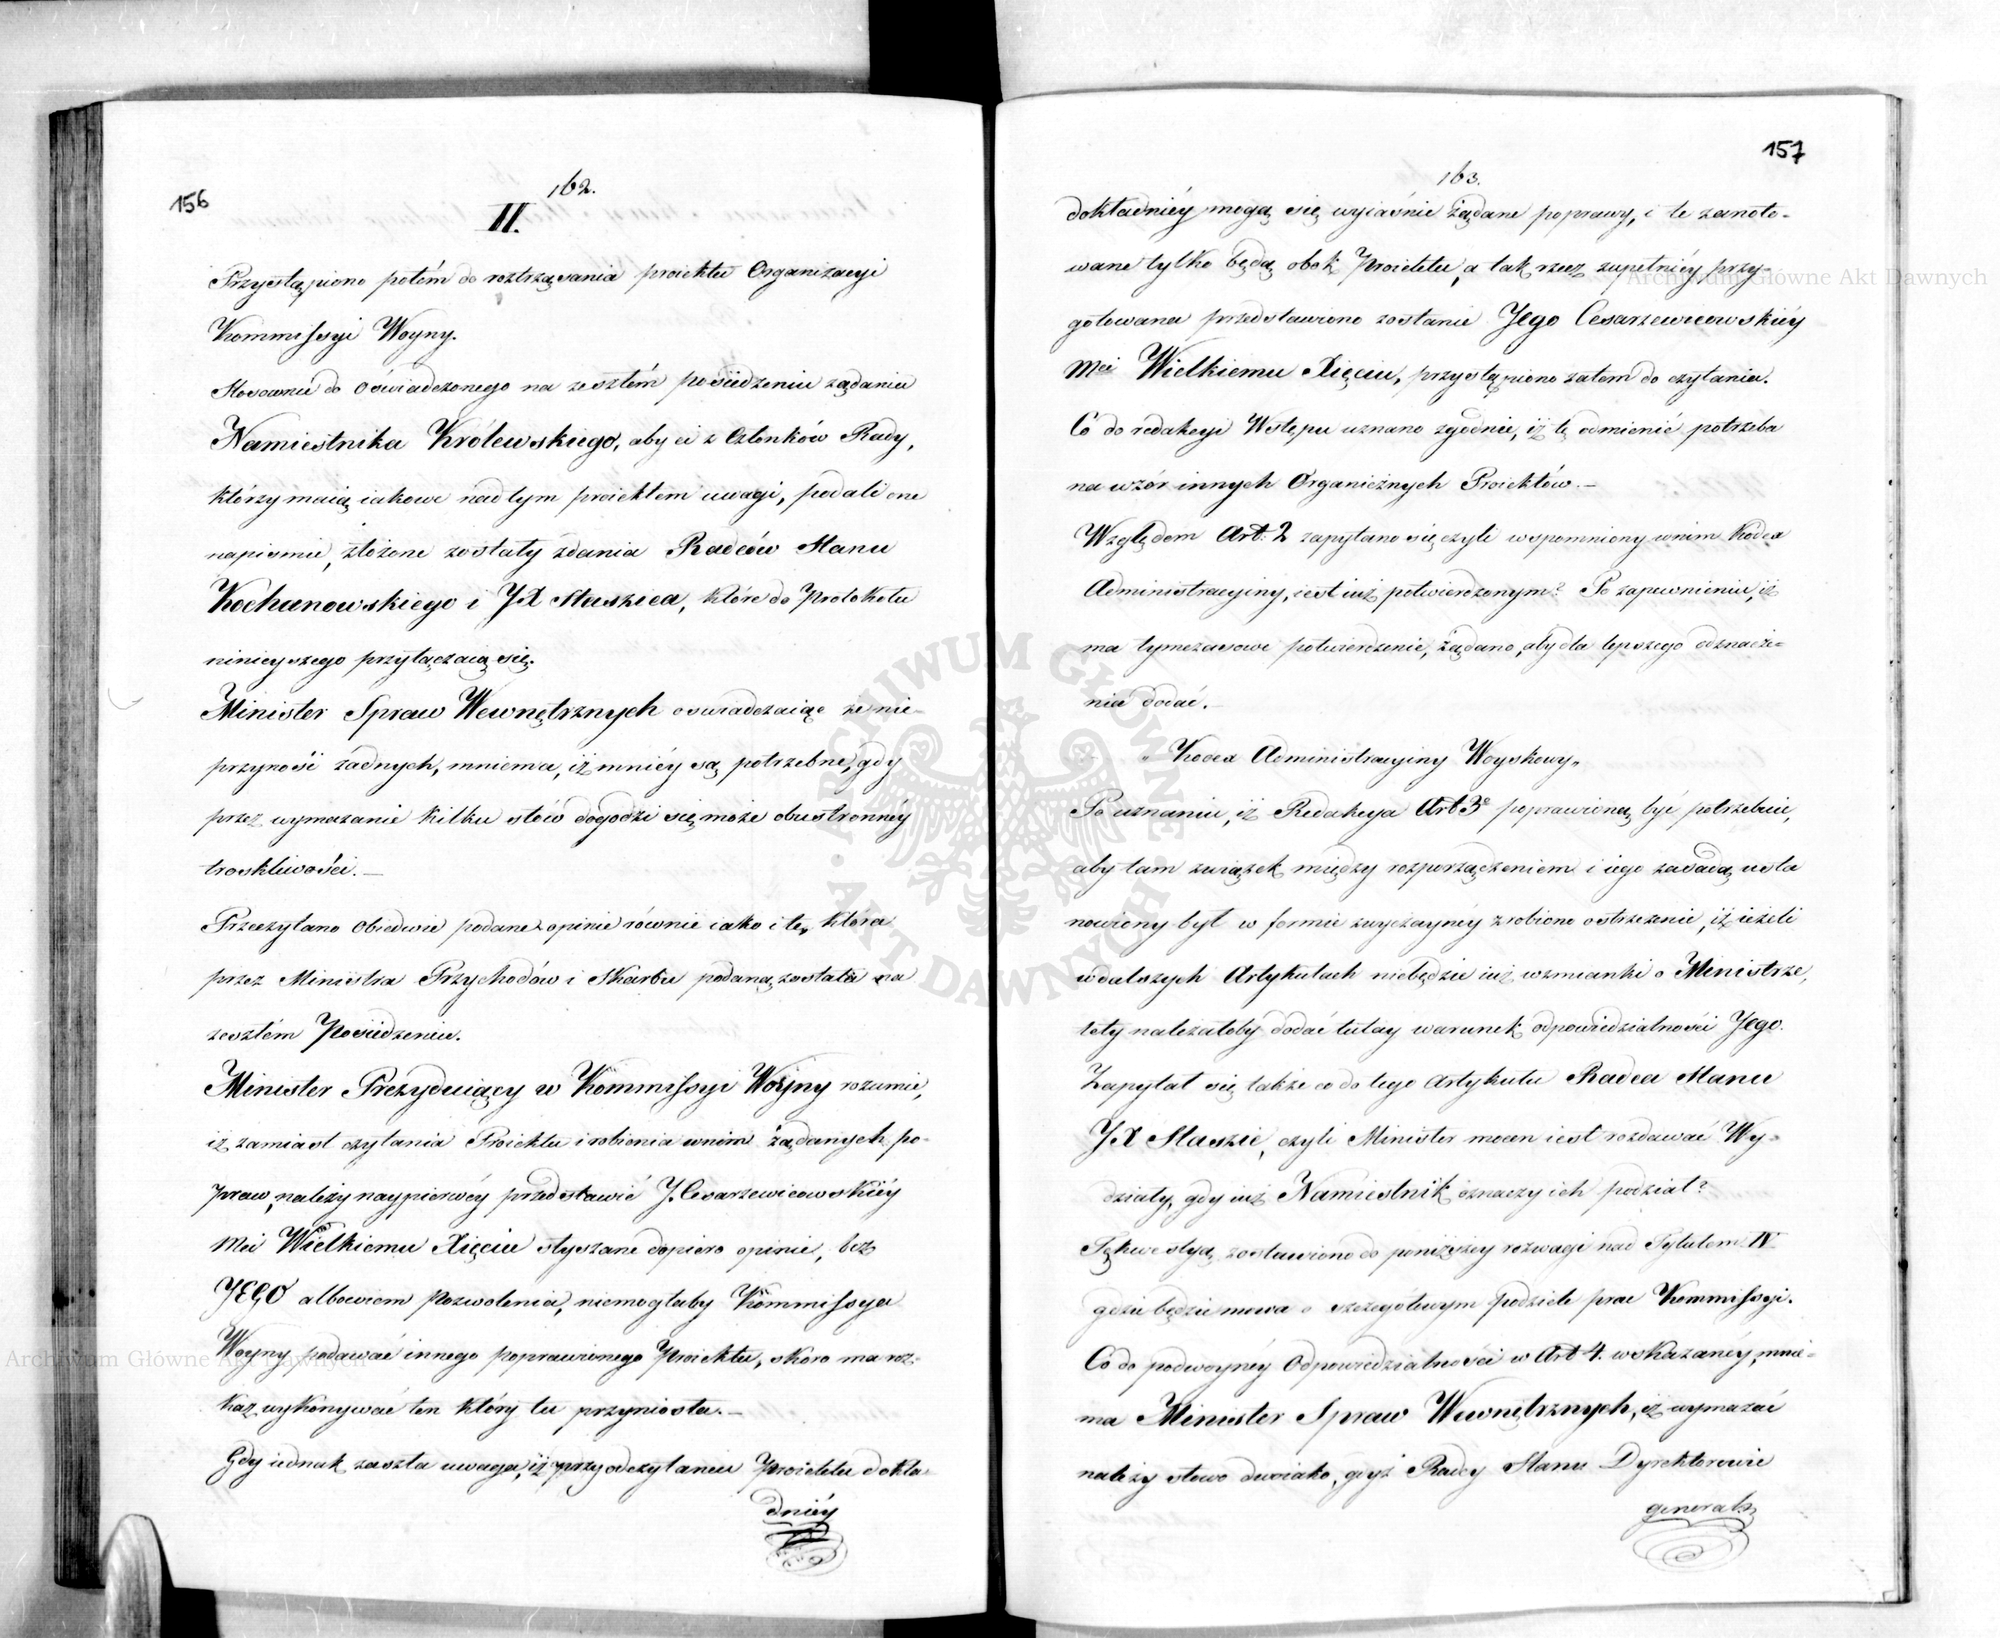 156
162.
II.
Przystąpiono potém do roztrząsania proiektu Organizacyi
Kommissyi Woyny.
Stosownie do oświadczonego na zeszłém posiedzeniu żądania
Namiestnika Królewskiego, aby ci z Członków Rady,
którzy maią iakowe nad tym proiektem uwagi, podali one
napismie, złożone zostały zdania Radców Stanu
Kochanowskiego i JX Staszica, które do Protokołu
ninieyszego przyłączaią się.
Minister Spraw Wewnętrznych oswiadczaiąc że nie-
przynosi żadnych, mniema, iż mniéy są potrzebne, gdy
przez wymazanie kilku słów dogodzi się może obustronnéy
troskliwości.—
Przeczytano obiedwie podane opinie równie iako i tę, która
przez Ministra Przychodów i Skarbu podaną została na
zeszłém Posiedzeniu.
Minister Prezyduiący w Kommissyi Woyny rozumie,
iż zamiast czytania Proiektu i robienia wnim żądanych po-
praw, należy naypierwéy przedstawić J. Cesarzewicowskiéy
Mci Wielkiemu Xięciu słyszane dopiero opinie, bez
JEGO albowiem Pozwolenia, niemogłaby Kommissya
Woyny podawać innego poprawionego Proiektu, skoro ma roz-
kaz wykonywać ten który tu przyniosła.—
Gdy iednak zaszła uwaga, iż przy odczytaniu Proiektu dokła-
dniéy
157
163.
dokładniéy mogą się wyiaśnić żądane poprawy, i te zanoto-
wane tylko będą obok Proiektu, a tak rzecz zupełniéy przy-
gotowana przedstawiono zostanie Jego Cesarzewicowskiéy
Mci Wielkiemu Xięciu, przystąpiono zatem do czytania.
Co do redakcyi Wstępu uznano zgodnie, iż tę odmienić potrzeba
na wzór innych Organicznych Proiektów.—
Względem Art: 2 zapytano się czyli wspomniony wnim Kodex
Administracyiny, iest iuż potwierdzonym? Po zapewnieniu, iż
ma tymczasowe potwierdzenie, żądano, aby dla lepszego oznacze-
nia dodać.
„Kodex Administracyiny Woyskowy„
Po uznaniu, iż Redakcya Art 3º poprawioną być potrzebuie,
aby tam związek między rozporządzeniem i iego zasadą usta
nowiony był w formie zwyczaynéy zrobiono ostrzeżenie, iż ieżeli
w dalszych Artykułach niebędzie iuż wzmianki o Ministrze,
tedy należałoby dodać tutay warunek odpowiedzialności Jego.
Zapytał się także co do tego Artykułu Radca Stanu
JX Staszic, czyli Minister mocen iest rozdawać Wy-
działy, gdy iuż Namiestnik oznaczy ich podział?
Tę kwestyą zostawiono do poniższey rozwagi nad Tytułem IV
gdzie będzie mowa o szczegółowym podziele prac Kommissyi.
Co do podwoynéy Odpowiedzialności w Art 4. wskazanéy, mnie-
ma Minister Spraw Wewnętrznych, iż wymazać
należy słowo dwoiako, gdyż Radcy Stanu Dyrektorowie
generalni
Archiwum Główne Akt Dawnych
Archiwum Główne Akt Dawnych
ARCHIWUM GŁÓWNE AKT DAWNYCH